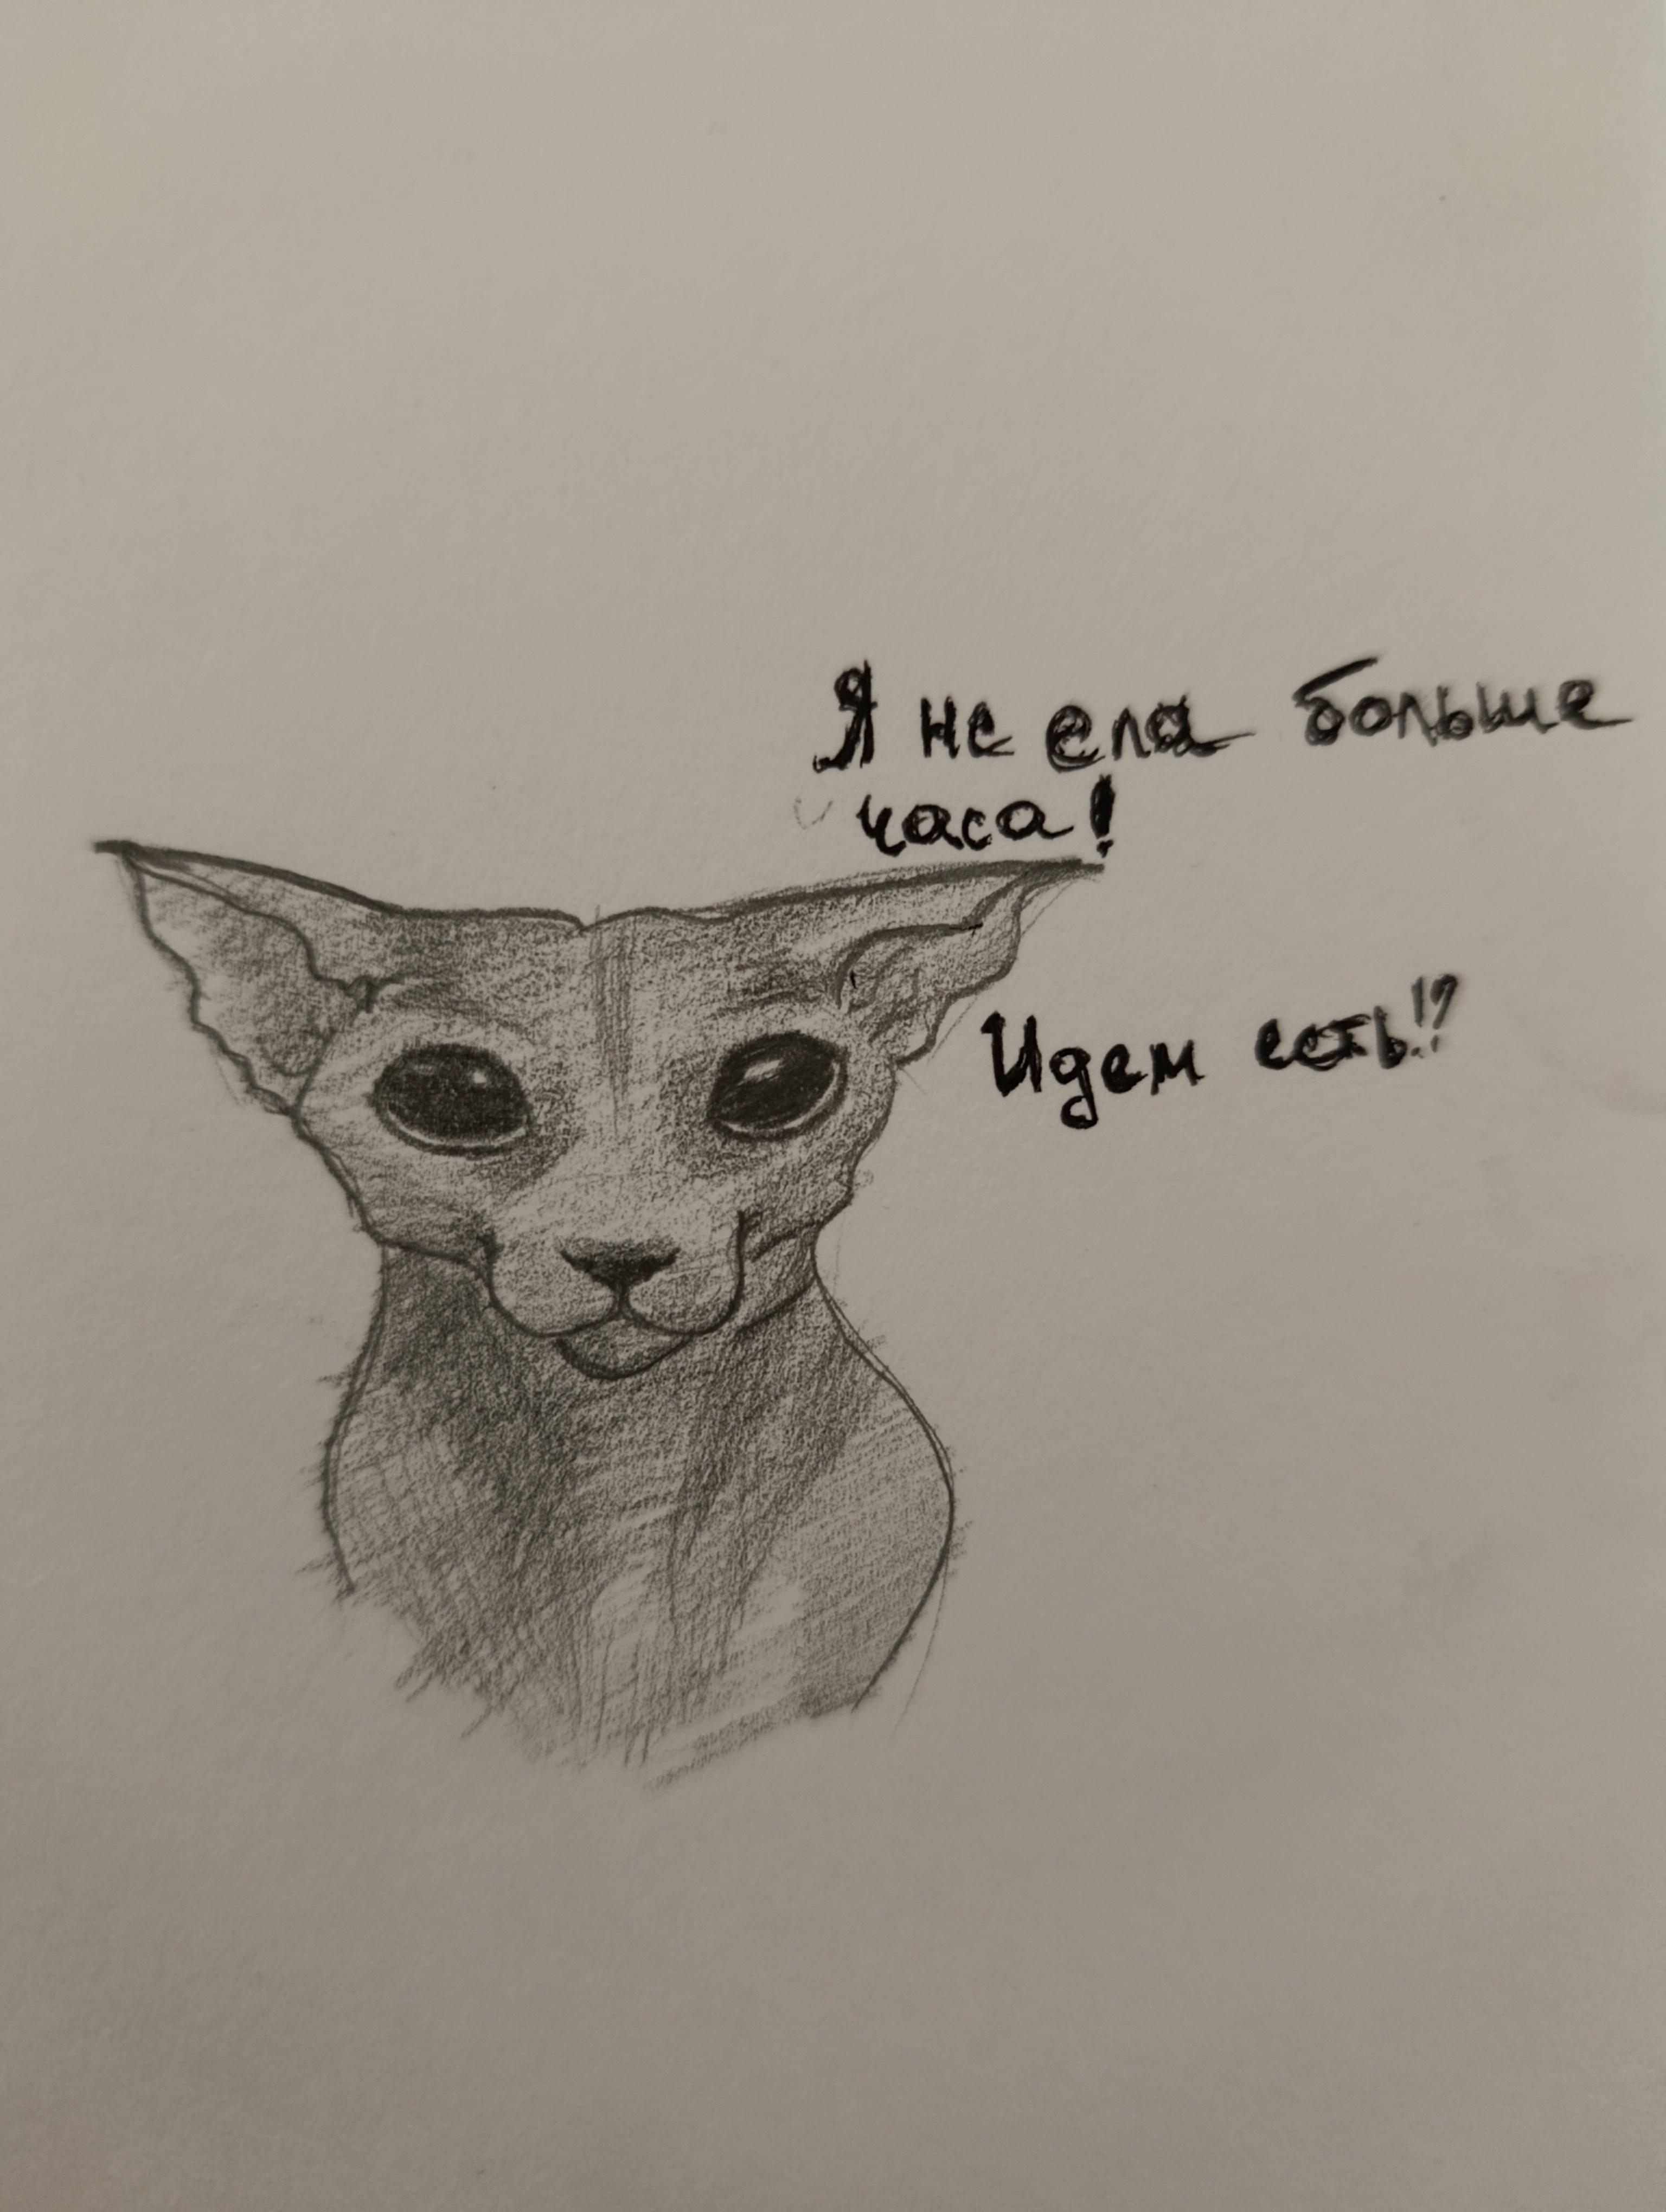 Я не ела больше
часа!
Идем есть!?